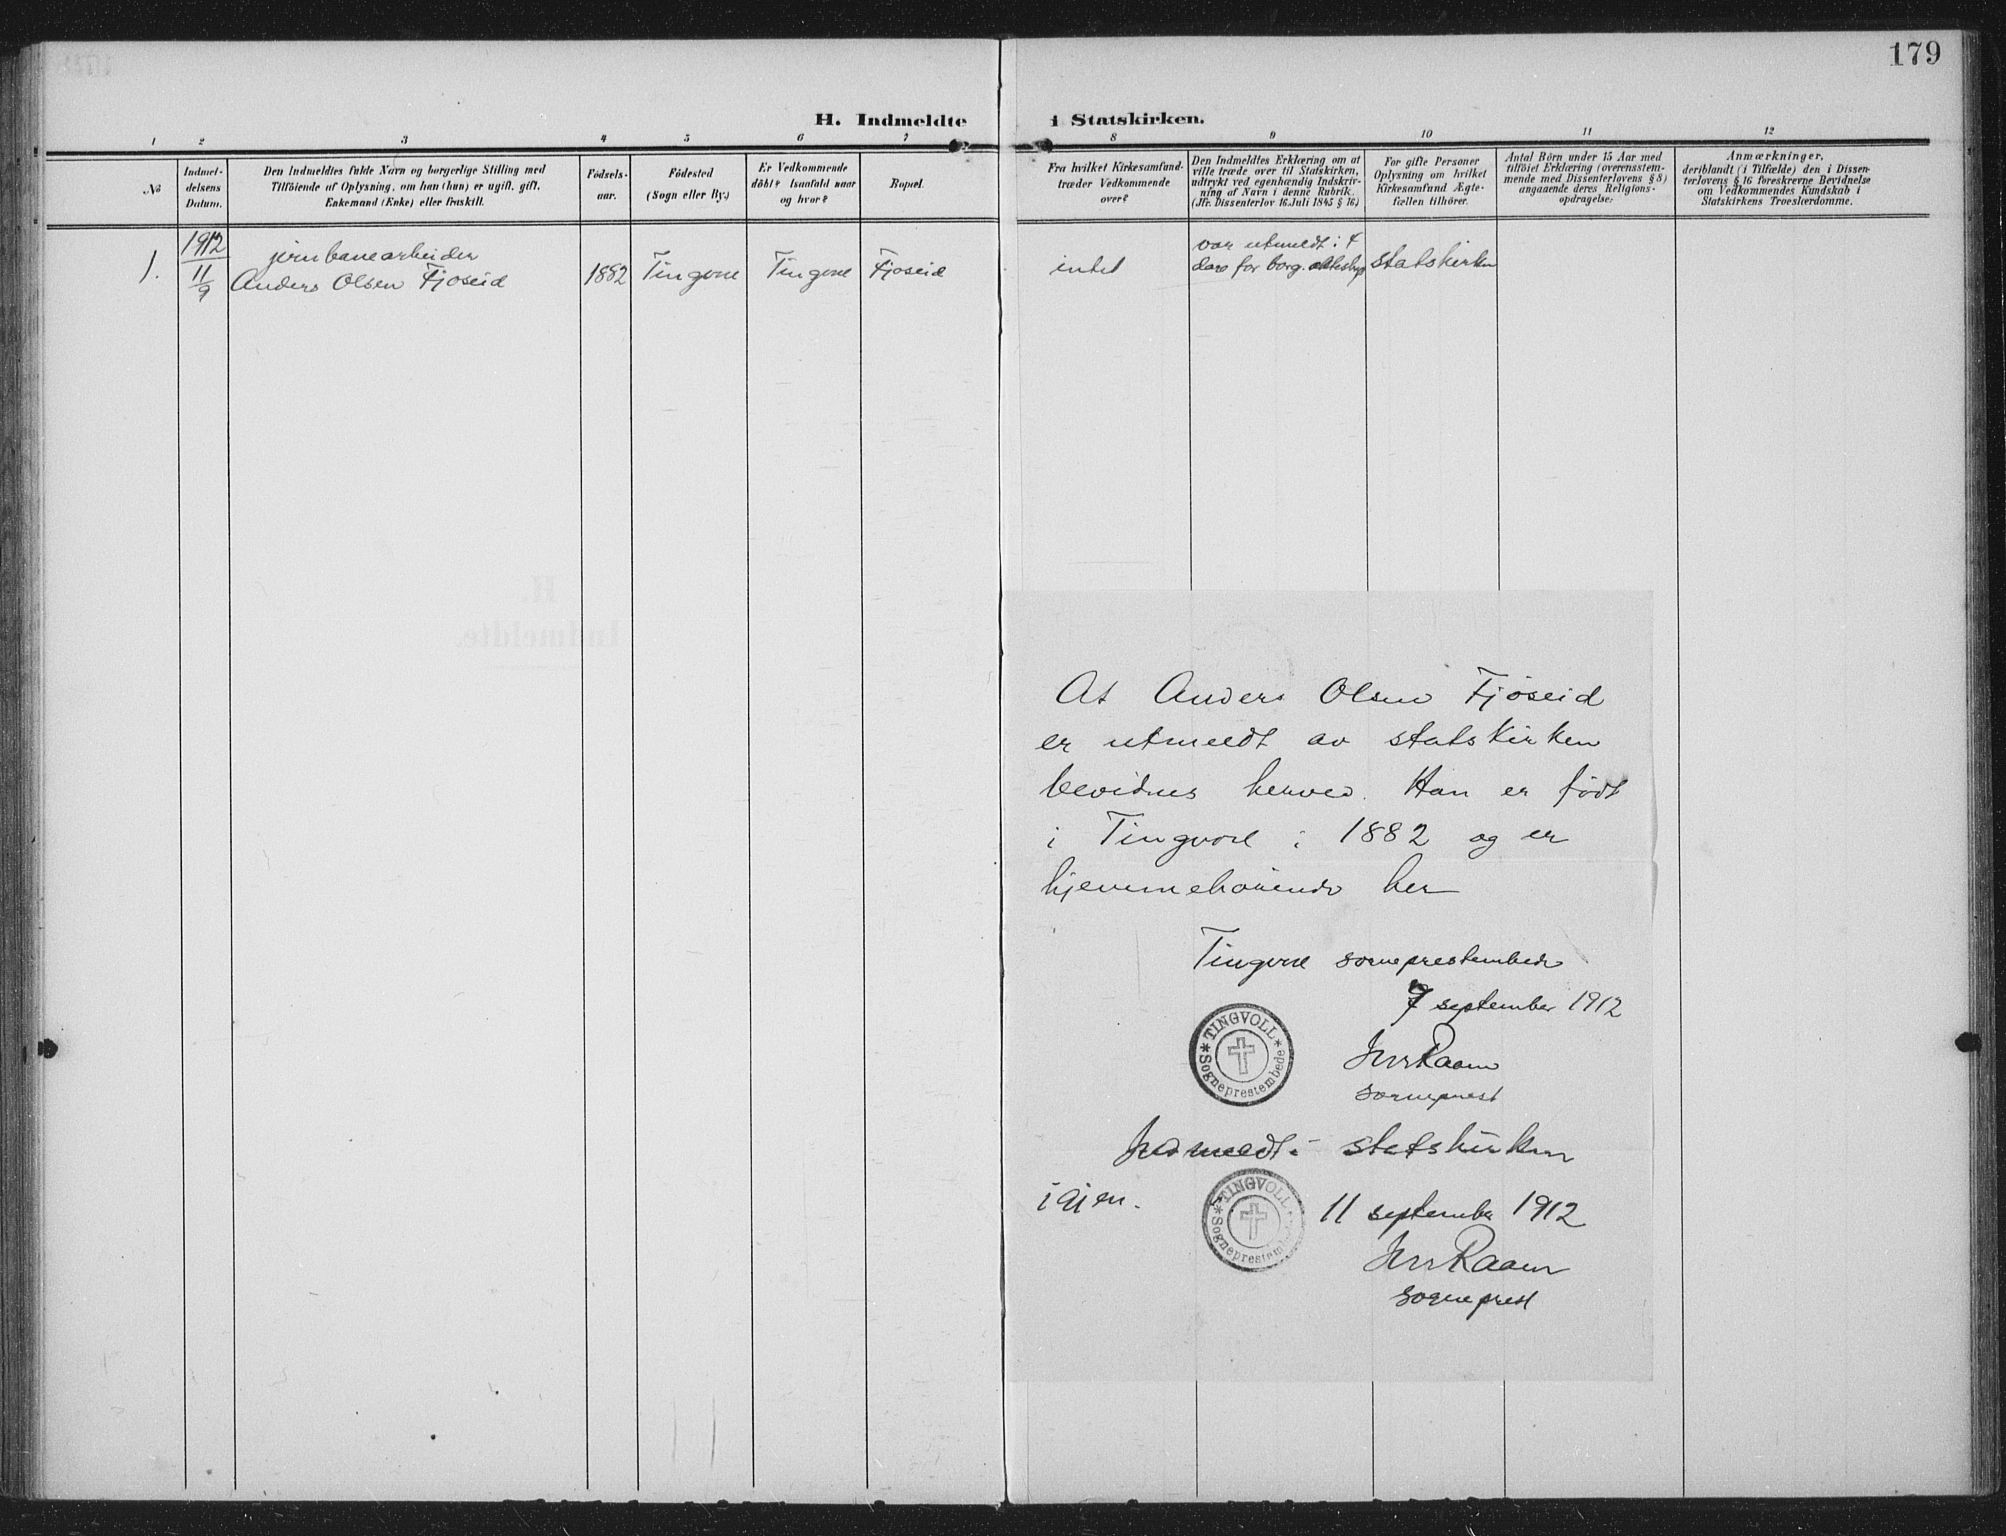 179
H. Indmeldte i Statskirken.
1 2 3 4 5 6 7 8 9 10 11 12
No
Indmel-
delsens
Datum.
Den Indmeldtes fulde Navn og borgerlige Stilling med
Tilföiende af Oplysning, om han (hun) er ugift, gift,
Enkemand (Enke) eller fraskilt.
Födsels-
aar.
Födested
(Sogn eller By.)
Er Vedkommende
döbt? Isaafald naar
og hvor?
Bopæl.
Fra hvilket Kirkesamfund
træder Vedkommende
over?
Den Indmeldtes Erklæring om at
ville træde over til Statskirken,
udtrykt ved egenhændig Indskriv-
ning af Navn i denne Rubrik.
(Jfr. Dissenterlov 16. Juli 1845 § 16.)
For gifte Personer
Oplysning om hvilket
Kirkesamfund Ægte-
fællen tilhörer.
Antal Börn under 15 Aar med
tilföiet Erklæring (overensstem-
mende med Dissenterlovens § 8)
angaaende deres Religions-
opdragelse:
Anmærkninger,
deriblandt (i Tilfælde) den i Dissen-
terlovens § 16 foreskrevne Bevidnelse
om Vedkommendes Kundskab i
Statskirkens Troeslærdomme.
1.
1912
11/9
jernbanearbeider
Anders Olsen Fjøseid
1882
Tingvoll
Tingvoll
Fjøseid
intet
var utmeldt i 4
dars for borg. ekteskap
statskirken
H.
Indmeldte.
At Anders Olsen Fjøseid
er utmeldt av statskirken
bevidnes herved. Han er født
i Tingvoll i 1882 og er
hjemmehørende her
Tingvoll sogneprestembede
7 september 1912
TINGVOLL
Sogneprestembede
Raam
sogneprest
Indmeldt i statskirken
igjen.
TINGVOLL
Sogneprestembede
11 september 1912
Raam
sogneprest